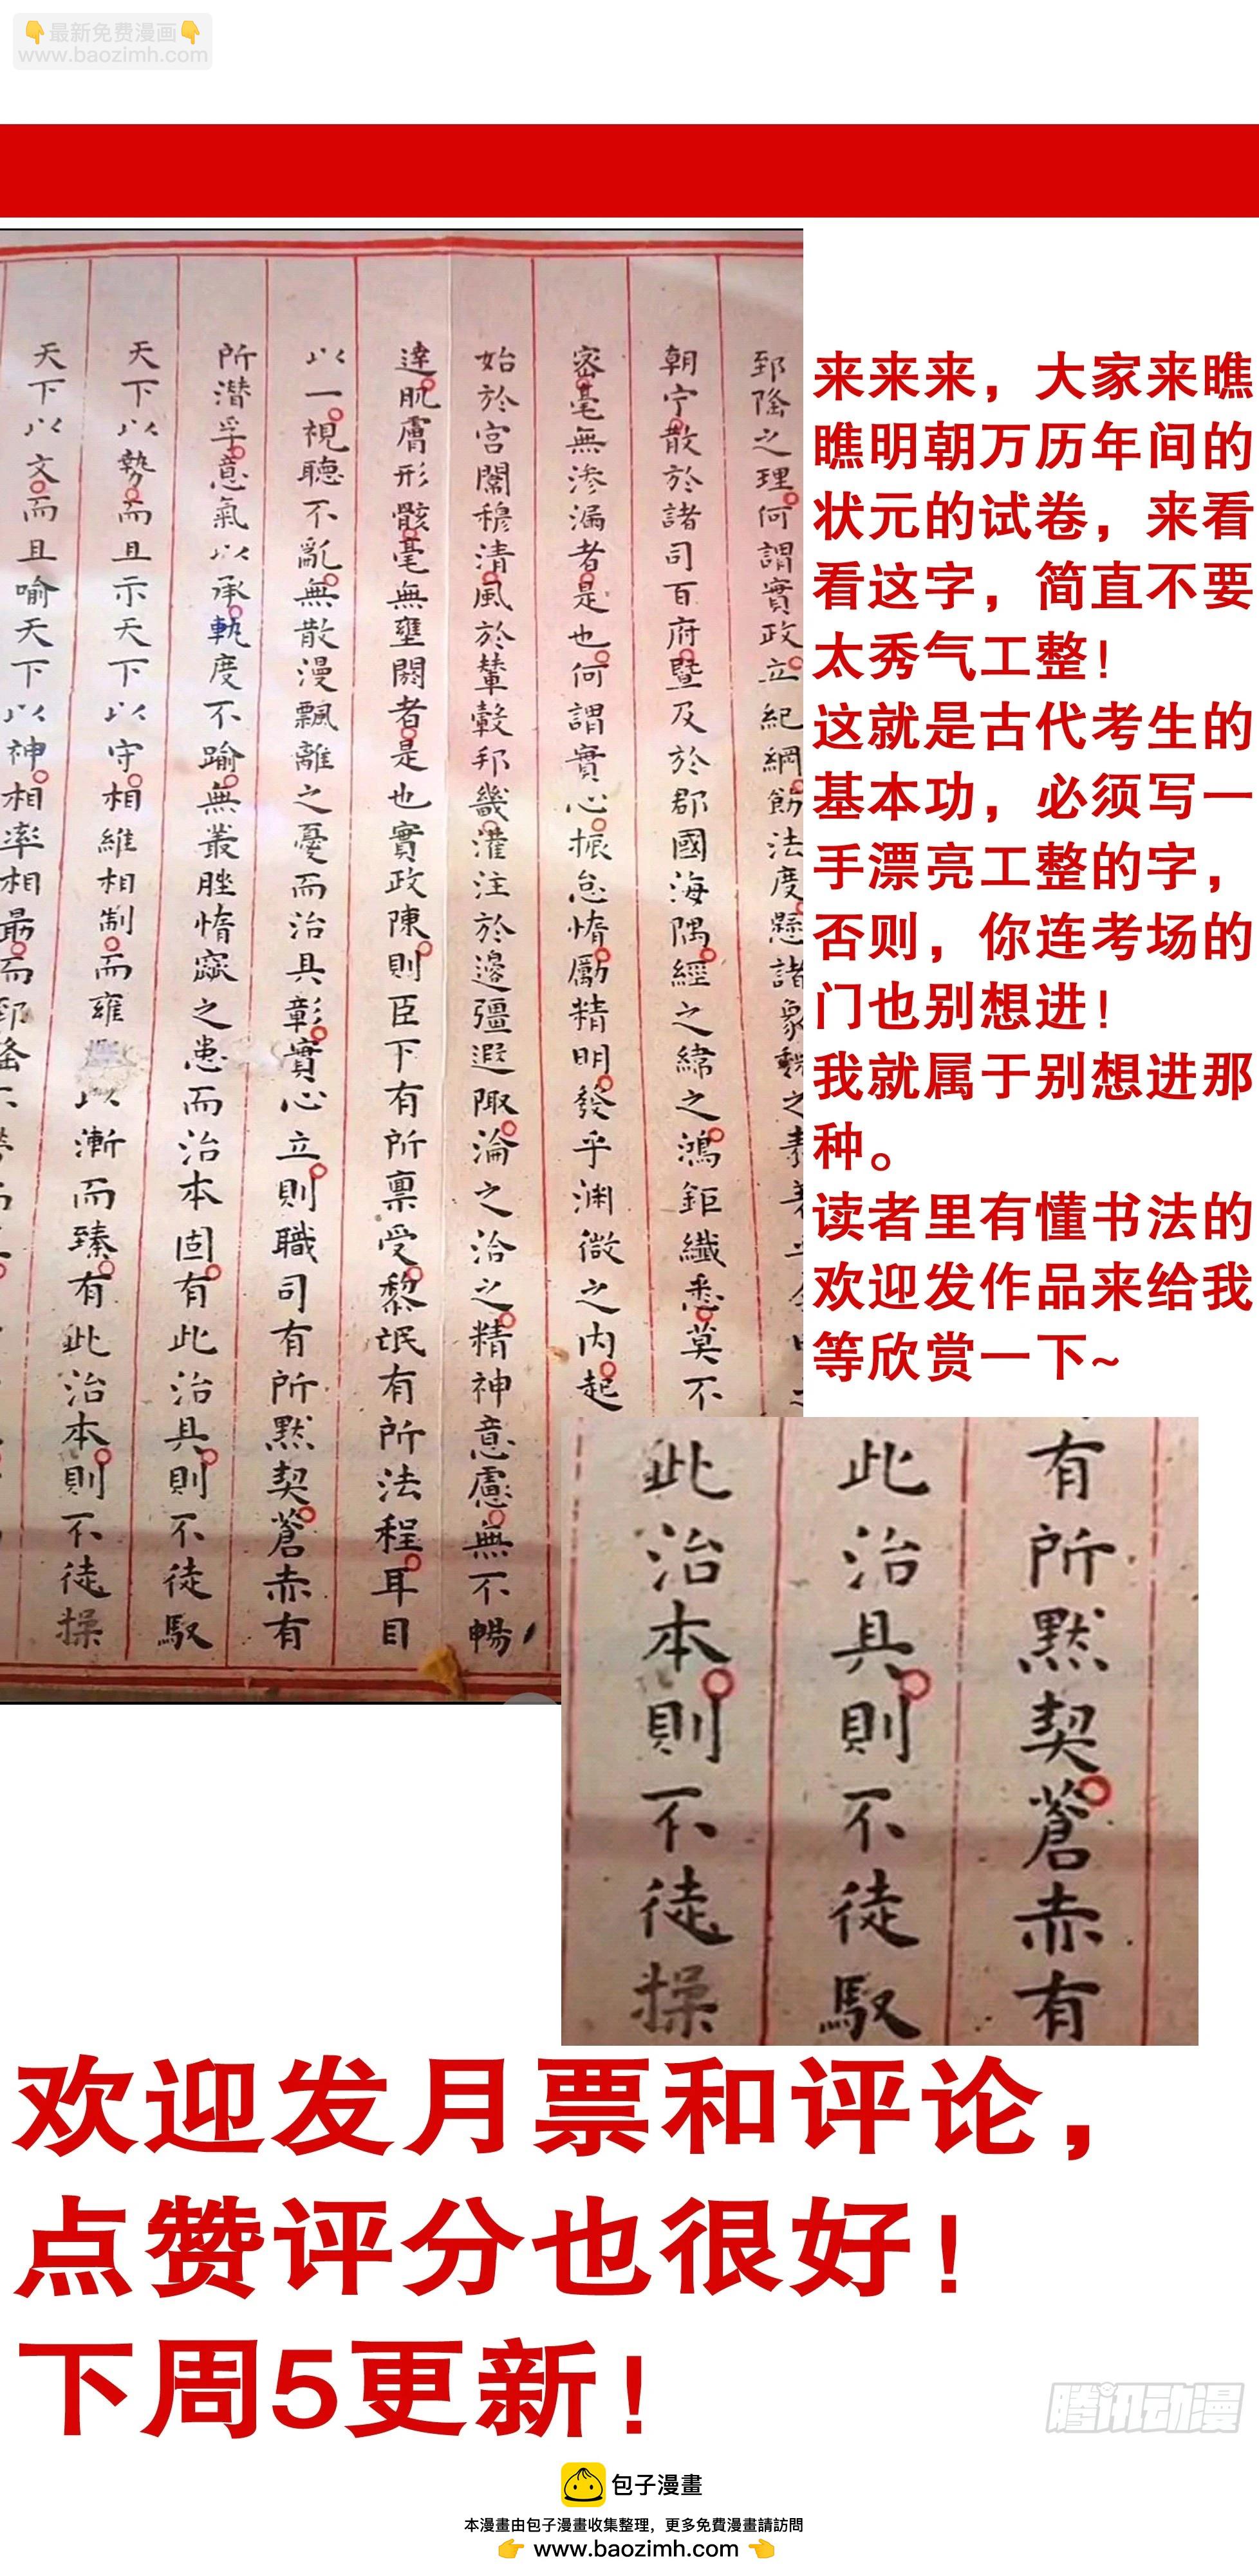 最新免费漫画
www.baozimh.com
来来来，大家来瞧
瞧明朝万历年间的
状元的试卷，来看
看这字，简直不要
太秀气工整！
这就是古代考生的
基本功，必须写一
手漂亮工整的字，
否则，你连考场的
门也别想进！
我就属于别想进那
种。
读者里有懂书法的
欢迎发作品来给我
等欣赏一下~
郅隆之理何謂實政立紀綱飭法度懸諸象魏之表著
朝宁散於諸司百府暨及於郡國海隅經之緯之鴻鉅纖悉莫不
密毫無滲漏者是也何謂實心振怠惰勵精明發乎渊微之内起
始於宮闈穆清風於輦轂邦畿灌注於邊疆遐陬淪之洽之精神意慮無不暢
達肌膚形骸毫無壅閼者是也實政陳則臣下有所稟受黎氓有所法程耳目
以一視聽不亂無散漫飄離之憂而治具彰實心立則職司有所默契蒼赤有
所潛孚意氣以承軌度不踰無叢脞惰窳之患而治本固有此治具則不徒馭
天下以勢而且示天下以守相維相制而雍以漸而臻有此治本則不徒操
天下以文而且喻天下以神相率相最而郅隆不
有所默契蒼赤有
此治具則不徒馭
此治本則不徒操
欢迎发月票和评论，
点赞评分也很好！
下周5更新！
腾讯动漫
包子漫畫
本漫畫由包子漫畫收集整理，更多免費漫畫請訪問
www.baozimh.com